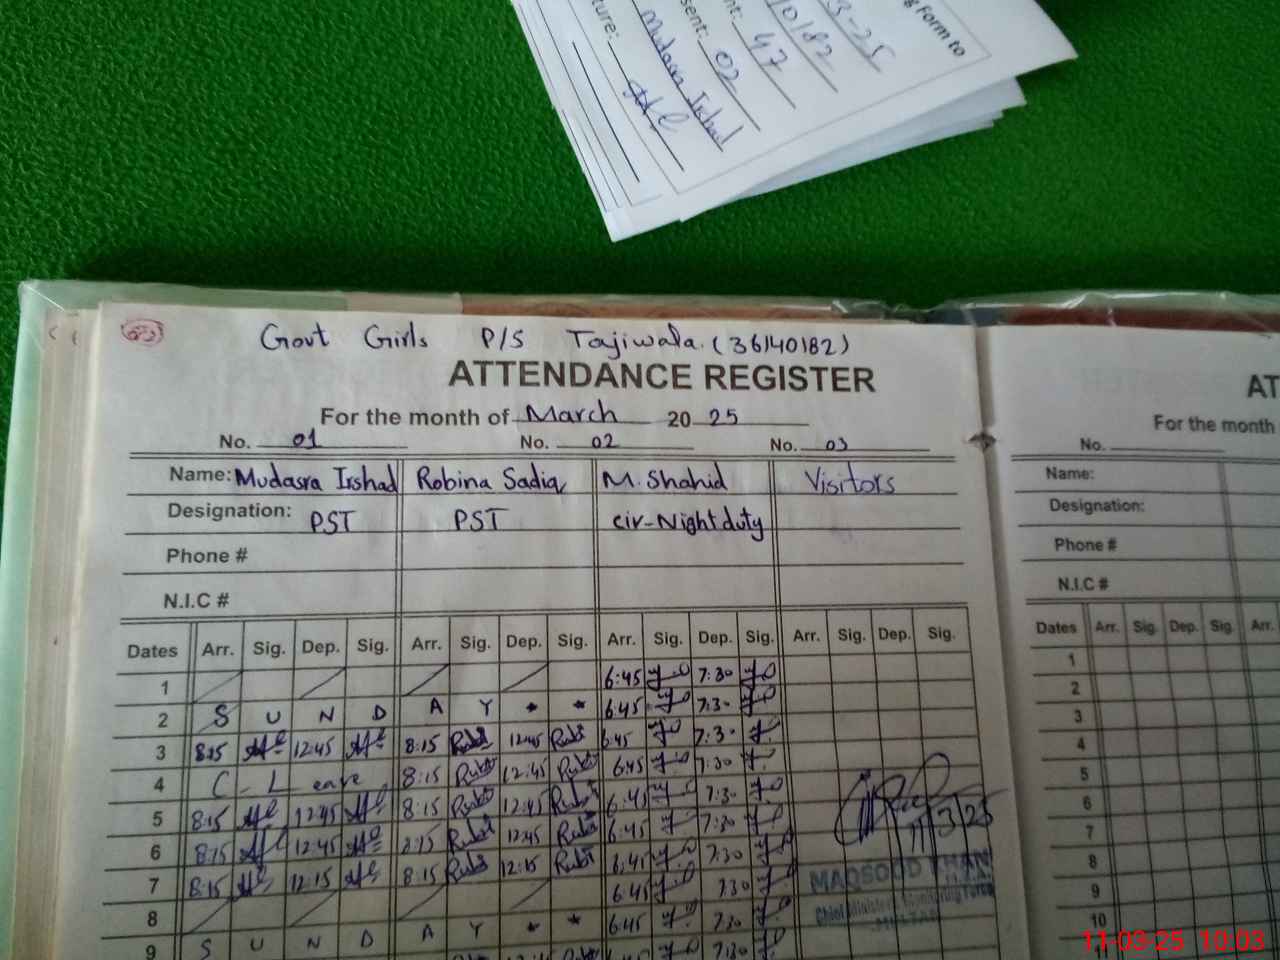 g Form to
3-25
10182
nt: 47
sent: 02
Mudasra Irshad
ture:
Govt Girls P/S Tajiwala. (36140182)
ATTENDANCE REGISTER
For the month of March 20 25
No. 01 No. 02 No. 03
Name: Mudasra Irshad Robina Sadiq M. Shahid Visitors
Designation: PST PST Civ-Night duty
Phone #
N.I.C #
Dates Arr. Sig. Dep. Sig. Arr. Sig. Dep. Sig. Arr. Sig. Dep. Sig. Arr. Sig. Dep. Sig.
1 6:45 7:30
2 S U N D A Y * * 6:45 7:30
3 8:15 12:45 8:15 12:45 6:45 7:30
4 C - Leave 8:15 12:45 6:45 7:30
5 8:15 12:45 8:15 12:45 6:45 7:30
6 8:15 12:45 8:15 12:45 6:45 7:30
7 8:15 12:15 8:15 12:15 6:45 7:30
8 6:45 7:30
9 S U N D A Y * * 6:45 7:30
7:30
11/3/25
MAQSOOD KHAN
Chief Minister's Monitoring Force
MULTAN
AT
For the month
No.
Name:
Designation:
Phone #
N.I.C #
Dates Arr. Sig. Dep. Sig. Arr.
1
2
3
4
5
6
7
8
9
10
11
11-03-25 10:03